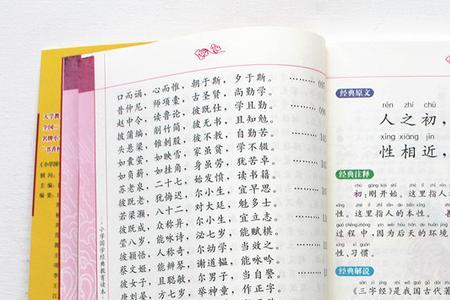 口而诵，心而惟，朝于斯，夕于斯。
昔仲尼，师项橐，古圣贤，尚勤学。
赵中令，读鲁论，彼既仕，学且勤。
披蒲编，削竹简，彼无书，且知勉。
头悬梁，锥刺股，彼不教，自勤苦。
如囊萤，如映雪，家虽贫，学不辍。
如负薪，如挂角，身虽劳，犹苦卓。
苏老泉，二十七，始发愤，读书籍。
彼既老，犹悔迟，尔小生，宜早思。
若梁灏，八十二，对大廷，魁多士。
彼既成，众称异，尔小生，宜立志。
莹八岁，能咏诗，泌七岁，能赋棋。
彼颖悟，人称奇，尔幼学，当效之。
蔡文姬，能辨琴，谢道韫，能咏吟。
彼女子，且聪敏，尔男子，当自警。
唐刘晏，方七岁，举神童，作正字。
小学国学经典教育读本
经典原文
rén zhī chū
人之初，
xìng xiāng jìn
性相近，
经典注释
初：刚开始。这里指人
性。这里指人的本性。善
过程中，因为后天的环境
性、习惯。
经典解说
《三字经》是我国古代著